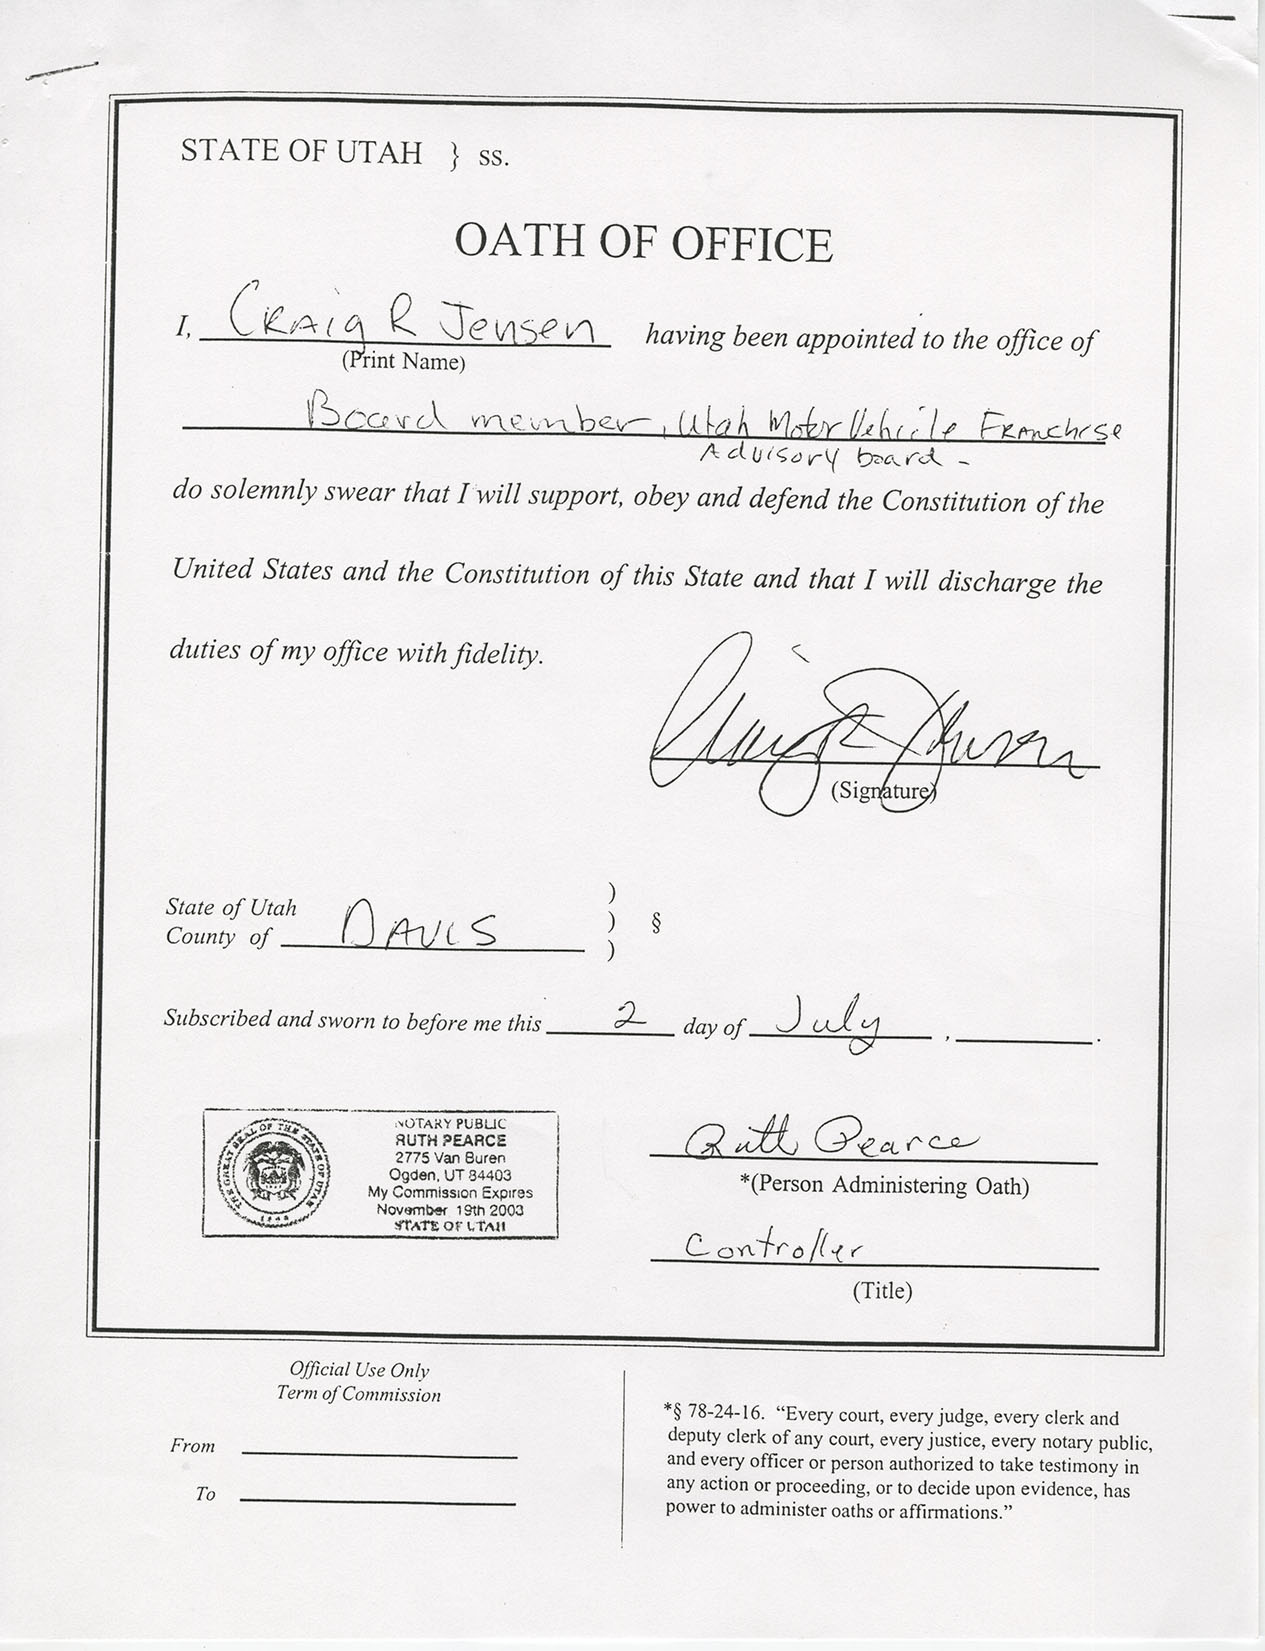 STATE OF UTAH } ss.
OATH OF OFFICE
I, Craig R Jensen having been appointed to the office of
(Print Name)
Board member, Utah Motor Vehicle Franchise
Advisory board -
do solemnly swear that I will support, obey and defend the Constitution of the
United States and the Constitution of this State and that I will discharge the
duties of my office with fidelity.
Craig R Jensen
(Signature)
State of Utah )
County of DAVIS ) §
)
Subscribed and sworn to before me this 2 day of July , .
NOTARY PUBLIC
RUTH PEARCE
2775 Van Buren
Ogden, UT 84403
My Commission Expires
November 19th 2003
STATE OF UTAH
THE GREAT SEAL OF THE STATE OF UTAH
1896
Ruth Pearce
*(Person Administering Oath)
Controller
(Title)
Official Use Only
Term of Commission
From
To
*§ 78-24-16. “Every court, every judge, every clerk and
deputy clerk of any court, every justice, every notary public,
and every officer or person authorized to take testimony in
any action or proceeding, or to decide upon evidence, has
power to administer oaths or affirmations.”